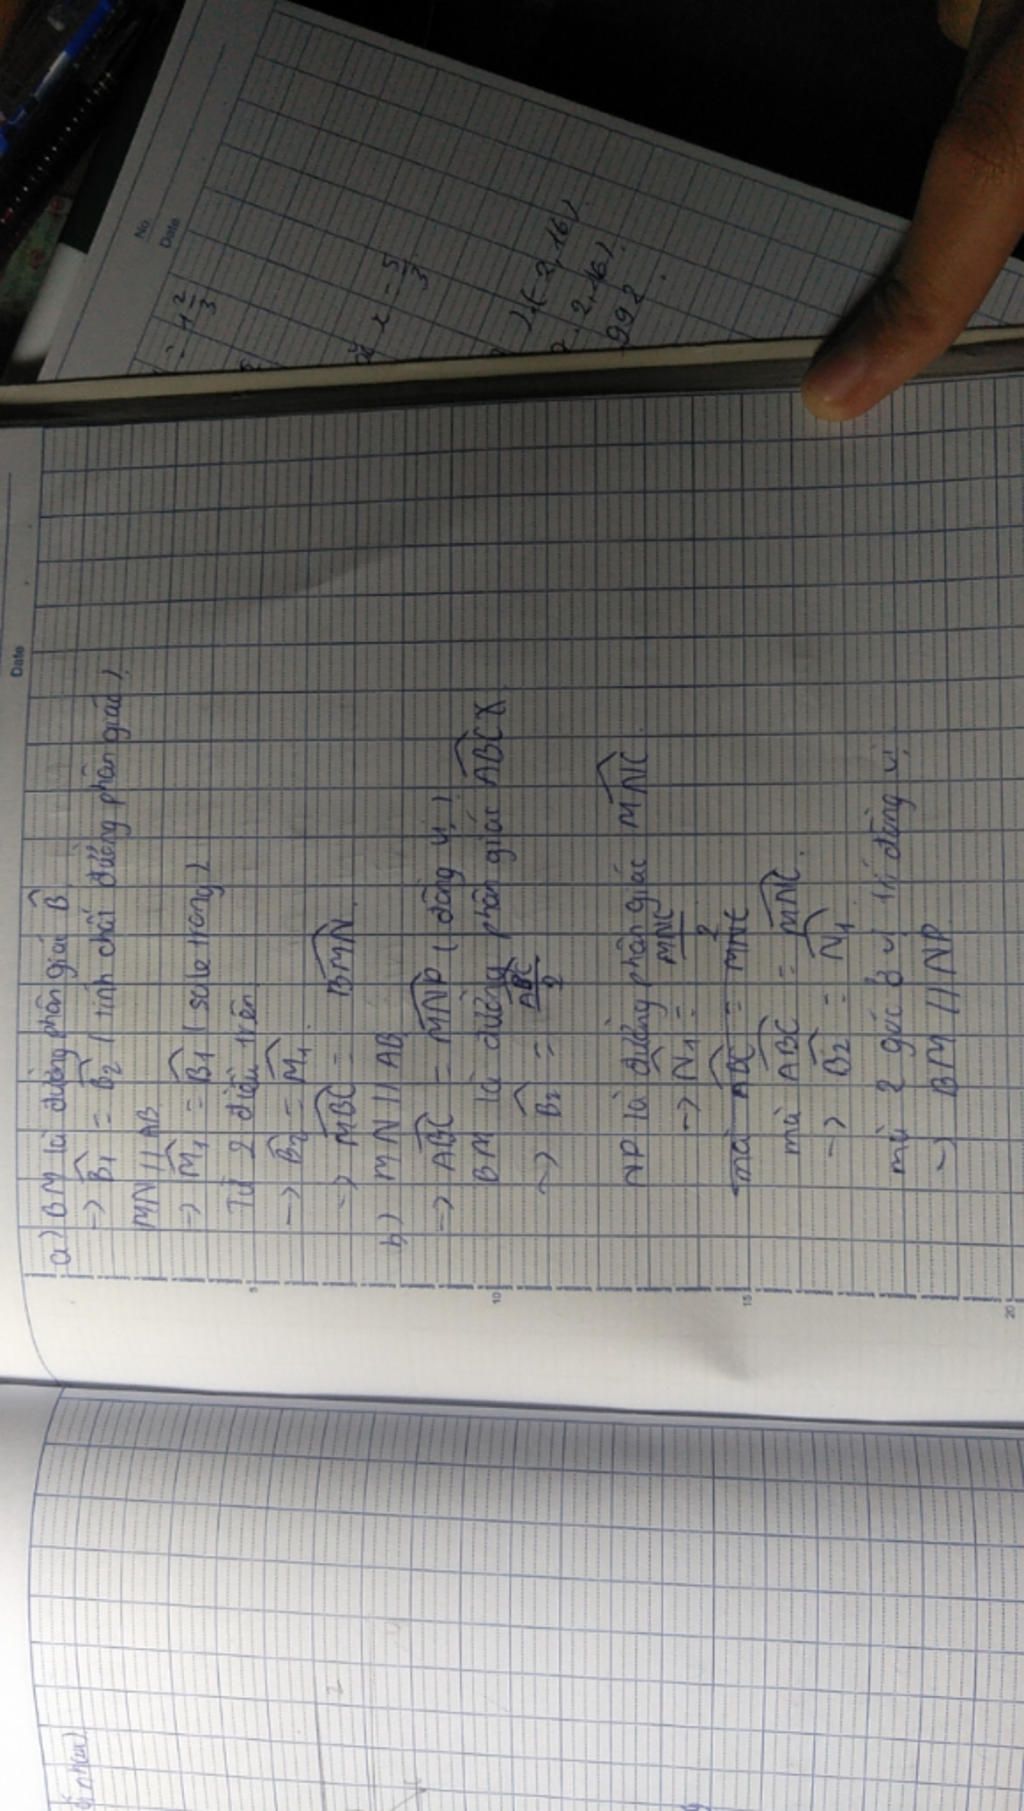 Date
a) BM là đường phân giác B̂
→ B̂1 = B̂2 (tính chất đường phân giác)
MN // AB
→ M̂1 = B̂1 (sole trong)
Từ 2 điều trên
→ B̂2 = M̂1
→ MBC = BMN.
b) MN // AB
→ ABC = MNP (đồng vị)
BM là đường phân giác ABC
→ B̂2 = ABC/2
NP là đường phân giác MNC
→ N̂1 = MNC/2
mà ABC = MNC
mà ABC = MNC.
→ B̂2 = N̂1
mà 2 góc ở vị trí đồng vị
→ BM // NP
5
10
15
20
No.
Date
1 2/3
x = 5/3
).(-2,16)
2,16)
992